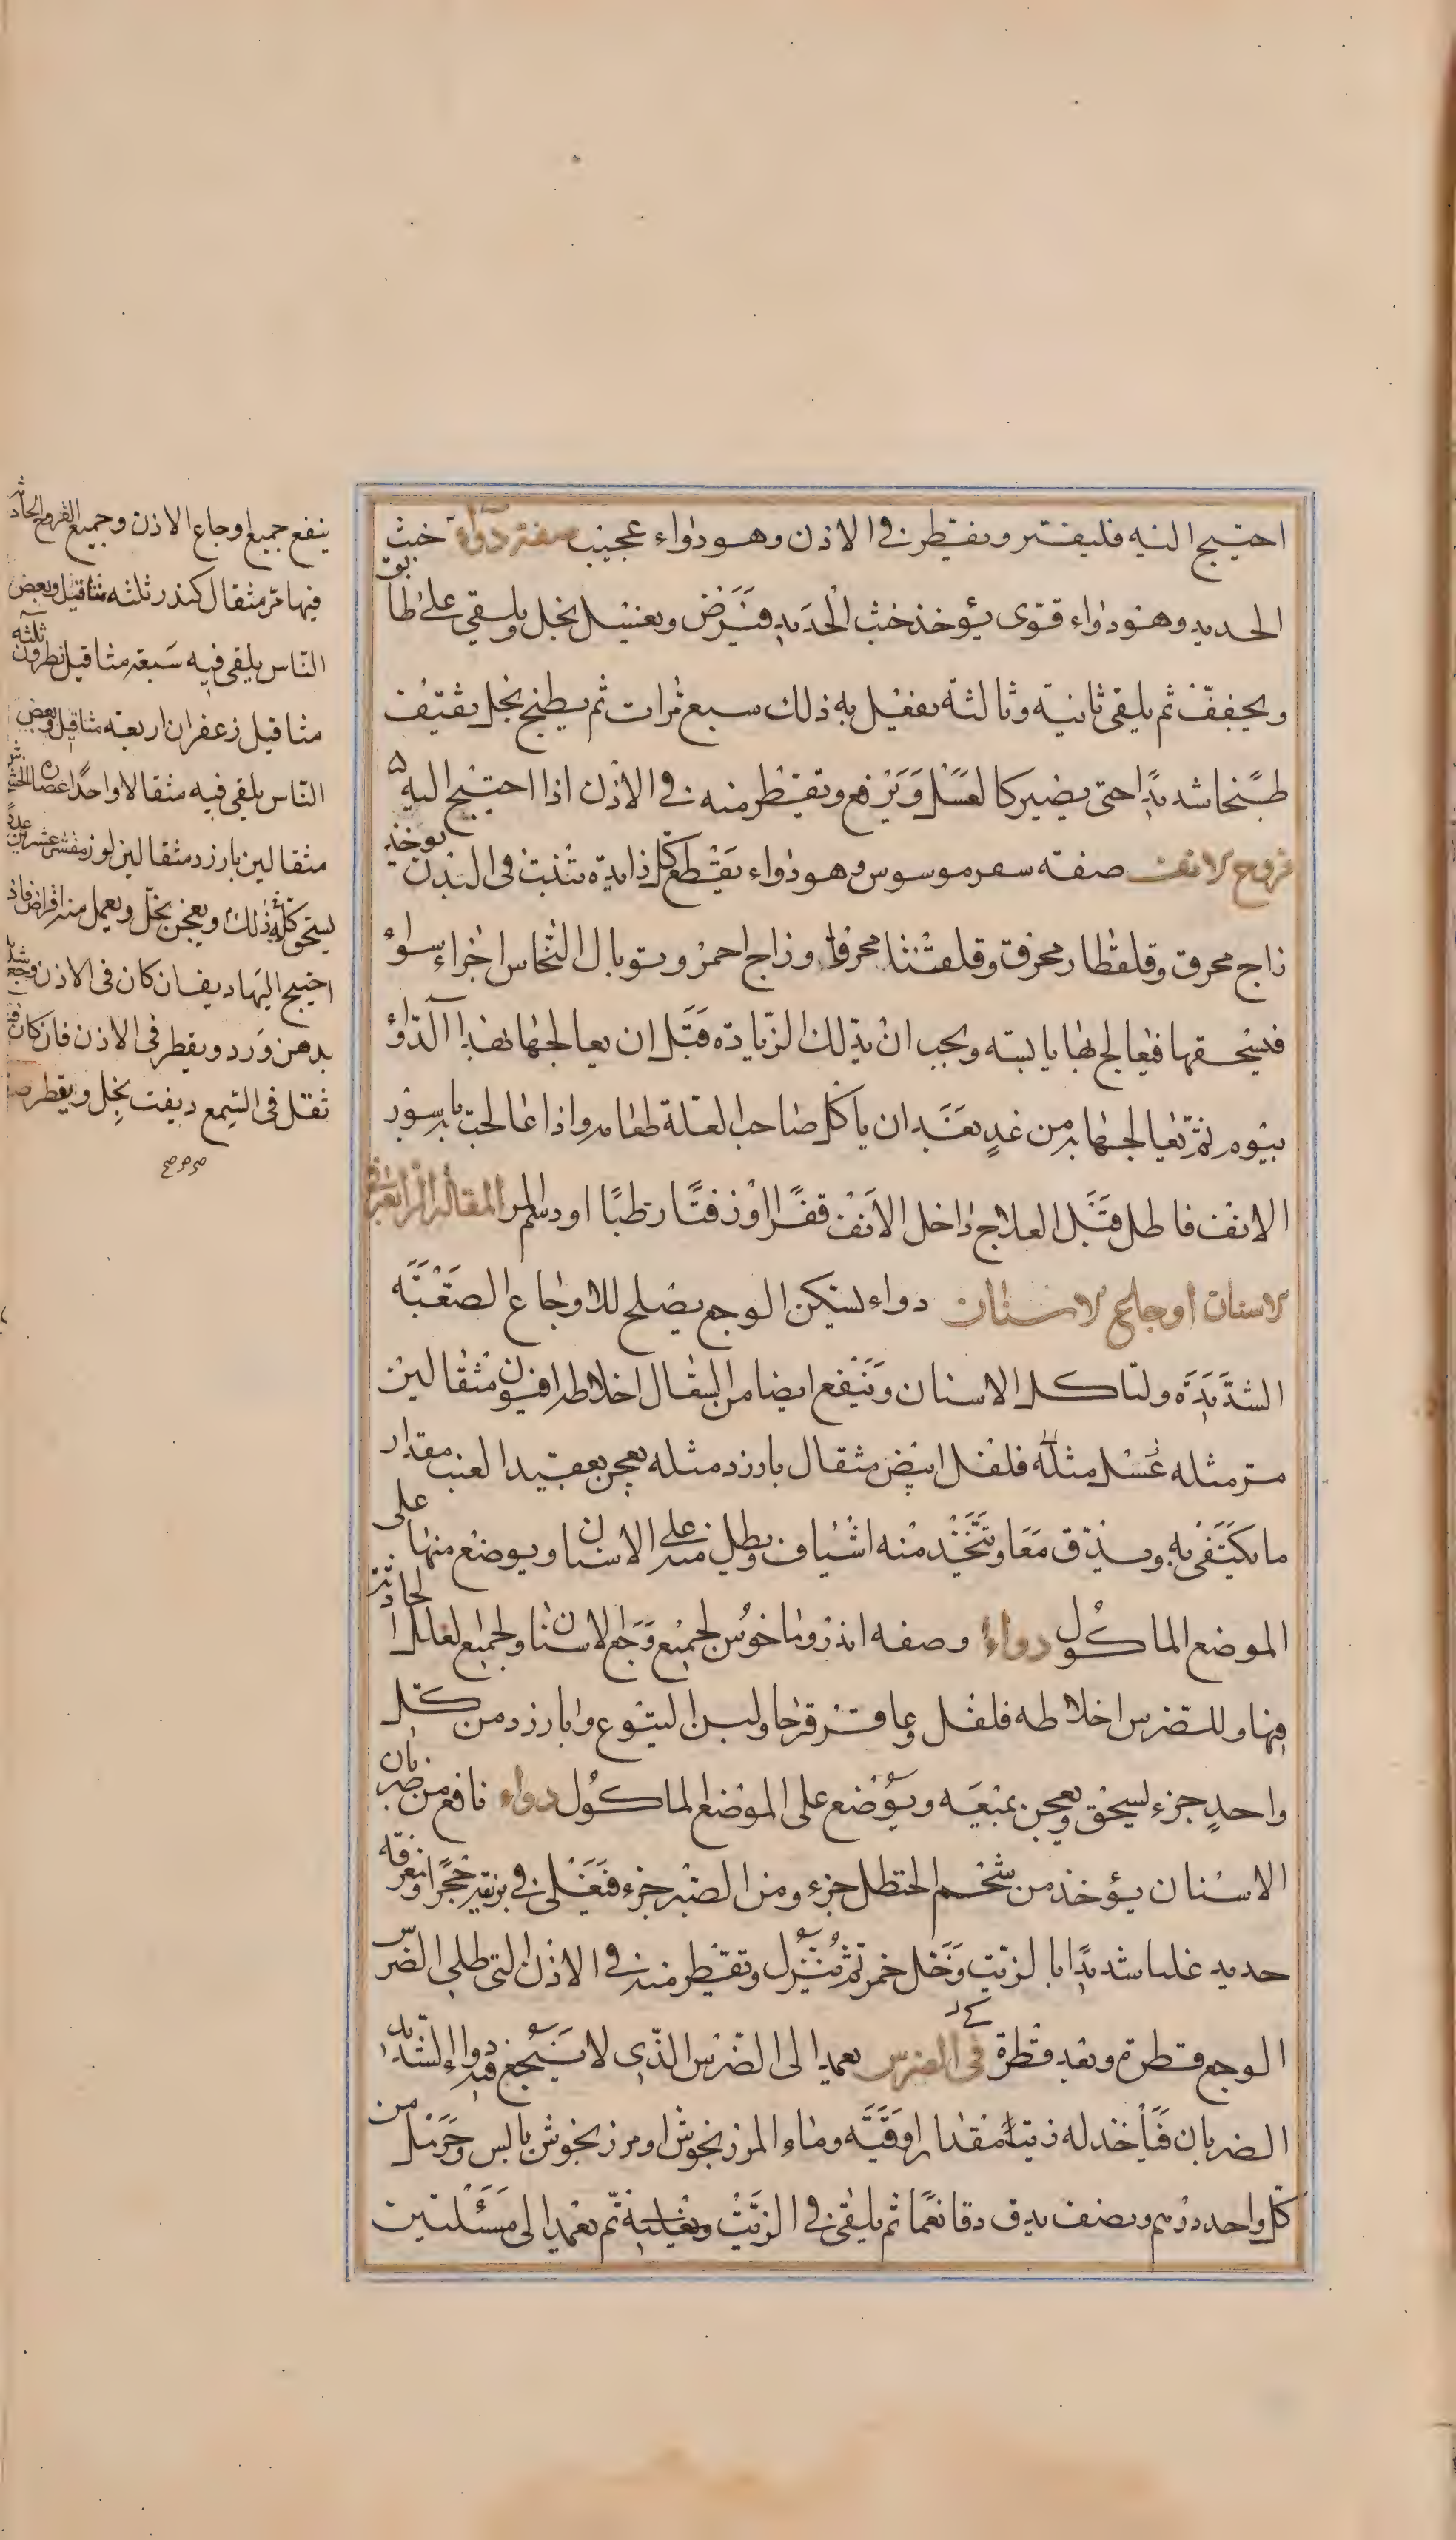 احتيج اليه فليفتر ويقطر في الاذن وهو دواء عجيب صفة دواء خبث
الحديد وهو دواء قوي يؤخذ خبث الحديد فيرض ويغسل بخل ويلقى على طابق
ويجفف ثم يلقى ثانية وثالثة يفعل به ذلك سبع مرات ثم يطبخ بخل ثقيف
طبخا شديدا حتى يصير كالعسل ويرفع ويقطر منه في الاذن اذا احتيج اليه
قروح الانف صفة سعرموسوس وهو دواء يقطع كل زايدة تنبت في البدن يوخذ
زاج محرق وقلقطار محرق وقلقنتا محرقا وزاج احمر وتوبال النحاس اجزاء سواء
فيسحقها فيعالج بها يابسة ويجب ان يدلك الزيادة قبل ان يعالجها بهذا الدواء
بيوم ثم تعالجها به من غد بعد ان ياكل صاحب العلة طعامه واذا عالجت باسور
الانف فاطل قبل العلاج داخل الانف قفرا او زفتا رطبا او دسالم المقالة الرابعة في
الاسنان اوجاع الاسنان دواء لتسكين الوجع يصلح للاوجاع الصعبة
الشديدة ولتاكل الاسنان وينفع ايضا من السعال اخلاطه افيون مثقالين
مر مثله عسل مثله فلفل ابيض مثقال بارزد مثله يعجن بعقيد العنب مقدار
ما يكتفى به ويدق معا ويتخذ منه اشياف ويطلى منه على الاسنان ويوضع منها على
الموضع الماكول دواء اوصفه اندروماخوس لجميع وجع الاسنان ولجميع العلل الحادثة
فيها وللضرس اخلاطه فلفل وعاقرقرحا ولبن اليتوع وبارزد من كل
واحد جزء يسحق ويعجن بميعه ويوضع على الموضع الماكول دواء نافع من ضربان
الاسنان يؤخذ من شحم الحنظل جزء ومن الصبر جزء فيغلى في برنية حجر او مغرفة
حديد غليا شديدا بالزيت وخل خمر ثم ينزل ويقطر منه في الاذن التي تلي الضرس
الوجع قطرة وبعد قطرة في الضرس يعمد الى الضرس الذي لا ينجع فيه دواء الشديد
الضربان فياخذ له زيتا مقدار اوقية وماء المرزنجوش او مرزنجوش يابس وحرمل من
كل واحد درهم ونصف يدق دقا نعما ثم يلقى في الزيت ويغليه ثم يعمد الى مسلتين
ينفع جميع اوجاع الاذن وجميع القروح الحادثة
فيها مر مثقال كندر ثلثة مثاقيل وبعض
الناس يلقى فيه سبعة مثاقيل نطرون ثلثة
مثاقيل زعفران اربعة مثاقيل وبعض
الناس يلقى فيه مثقالا واحدا عصارة الخشخاش
مثقالين بارزد مثقالين لوز مقشر عشرين عددا
يسحق كله ذلك ويعجن بخل ويعمل منه اقراص فاذا
احتيج اليها ديف ان كان في الاذن وجع شديد
بدهن ورد ويقطر في الاذن فان كان فيه
ثقل في السمع ديفت بخل ويقطر صح
صح صح